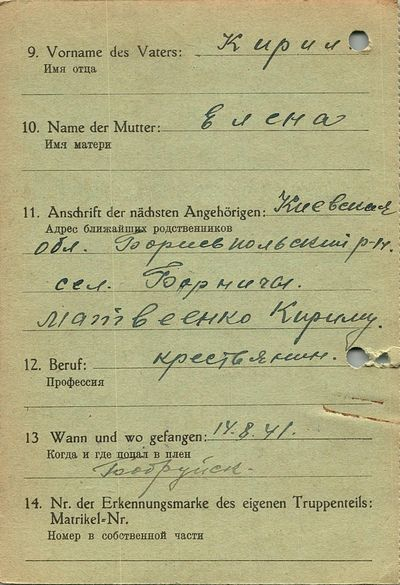 9. Vorname des Vaters: Кирил
Имя отца
10. Name der Mutter: Елена
Имя матери
11. Anschrift der nächsten Angehörigen: Киевская
Адрес ближайших родственников
обл. Бориспольский р-н.
сел. Борничы.
Матвеенко Кирилу.
12. Beruf: крестьянин.
Профессия
13 Wann und wo gefangen: 14.8.41.
Когда и где попал в плен
Бобруйск.
14. Nr. der Erkennungsmarke des eigenen Truppenteils:
Matrikel-Nr.
Номер в собственной части